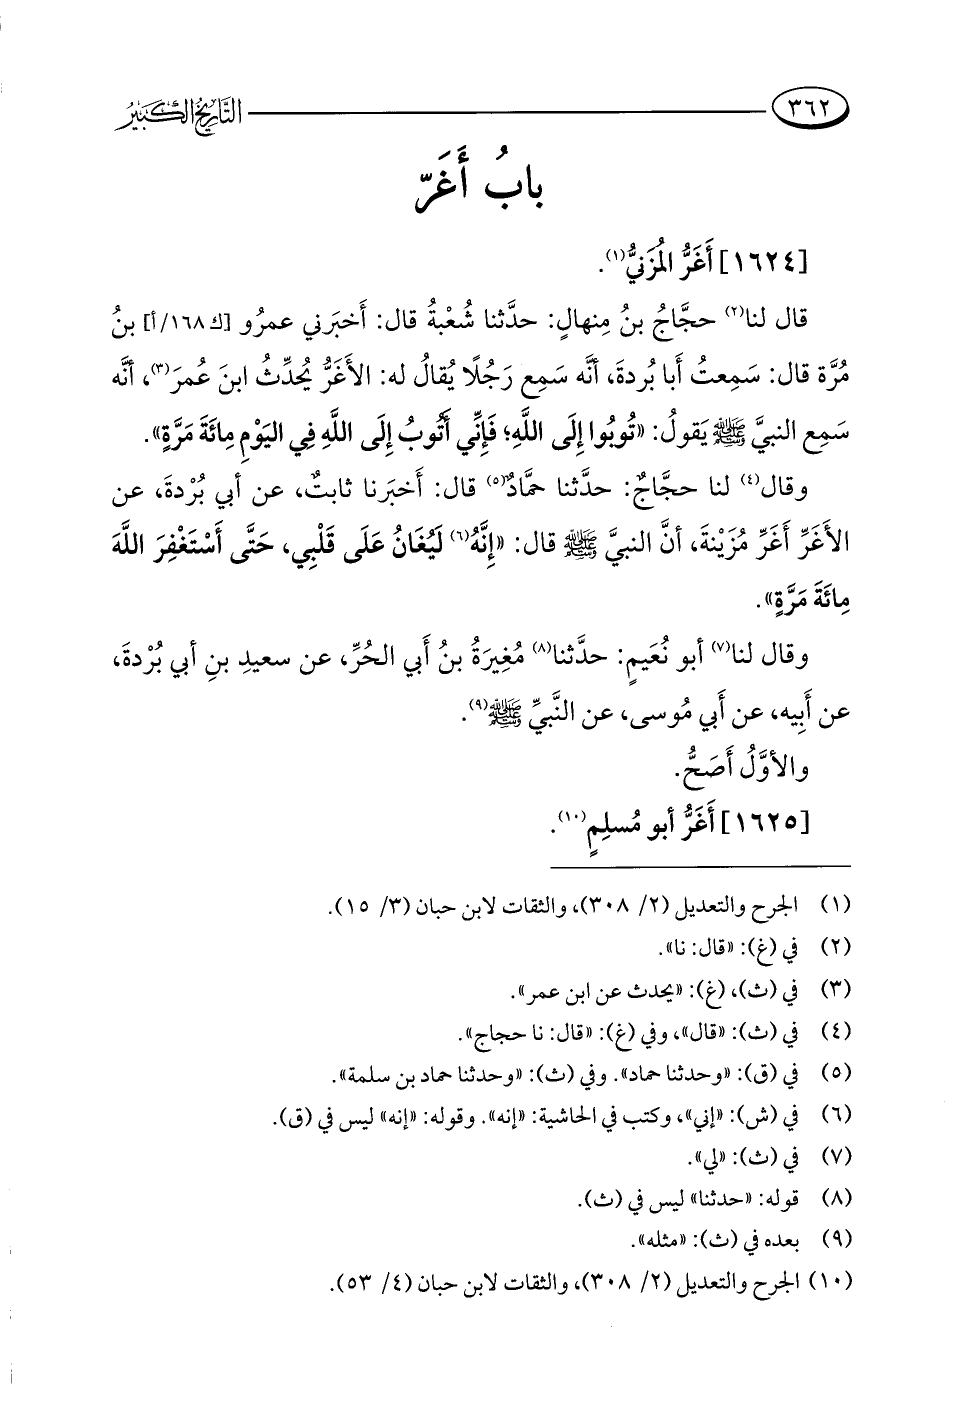 ٣٦٢ التَّارِيخُ الكَبِيْرُ
بابُ أَغَرّ
[١٦٢٤] أَغَرُّ المُزَنيُّ(١).
قال لنا(٢) حجَّاجُ بنُ مِنهالٍ: حدَّثنا شُعْبةُ قال: أخبَرني عمرُو [ك١٦٨/أ] بنُ
مُرَّة قال: سَمِعتُ أبا بُردةَ، أنَّه سَمِع رَجُلًا يُقالُ له: الأَغَرُّ يُحدِّثُ ابنَ عُمرَ(٣)، أنَّه
سَمِع النبيَّ ﷺ يَقولُ: «تُوبُوا إِلَى اللَّهِ؛ فَإِنِّي أَتُوبُ إِلَى اللَّهِ فِي اليَوْمِ مِائَةَ مَرَّةٍ».
وقال(٤) لنا حجَّاجٌ: حدَّثنا حمَّادٌ(٥) قال: أخبَرنا ثابتٌ، عن أبي بُرْدةَ، عن
الأَغَرِّ أَغَرِّ مُزَيْنةَ، أنَّ النبيَّ ﷺ قال: «إِنَّهُ(٦) لَيُغَانُ عَلَى قَلْبِي، حَتَّى أَسْتَغْفِرَ اللَّهَ
مِائَةَ مَرَّةٍ».
وقال لنا(٧) أبو نُعَيمٍ: حدَّثنا(٨) مُغِيرَةُ بنُ أَبي الحُرِّ، عن سعيدِ بنِ أبي بُرْدةَ،
عن أَبِيه، عن أَبي مُوسى، عن النَّبيِّ ﷺ(٩).
والأوَّلُ أَصَحُّ.
[١٦٢٥] أَغَرُّ أبو مُسلِمٍ(١٠).
(١) الجرح والتعديل (٢/ ٣٠٨)، والثقات لابن حبان (٣/ ١٥).
(٢) في (غ): «قال: نا».
(٣) في (ث)، (غ): «يحدث عن ابن عمر».
(٤) في (ث): «قال»، وفي (غ): «قال: نا حجاج».
(٥) في (ق): «وحدثنا حماد». وفي (ث): «وحدثنا حماد بن سلمة».
(٦) في (ش): «إني»، وكتب في الحاشية: «إنه». وقوله: «إنه» ليس في (ق).
(٧) في (ث): «لي».
(٨) قوله: «حدثنا» ليس في (ث).
(٩) بعده في (ث): «مثله».
(١٠) الجرح والتعديل (٢/ ٣٠٨)، والثقات لابن حبان (٤/ ٥٣).